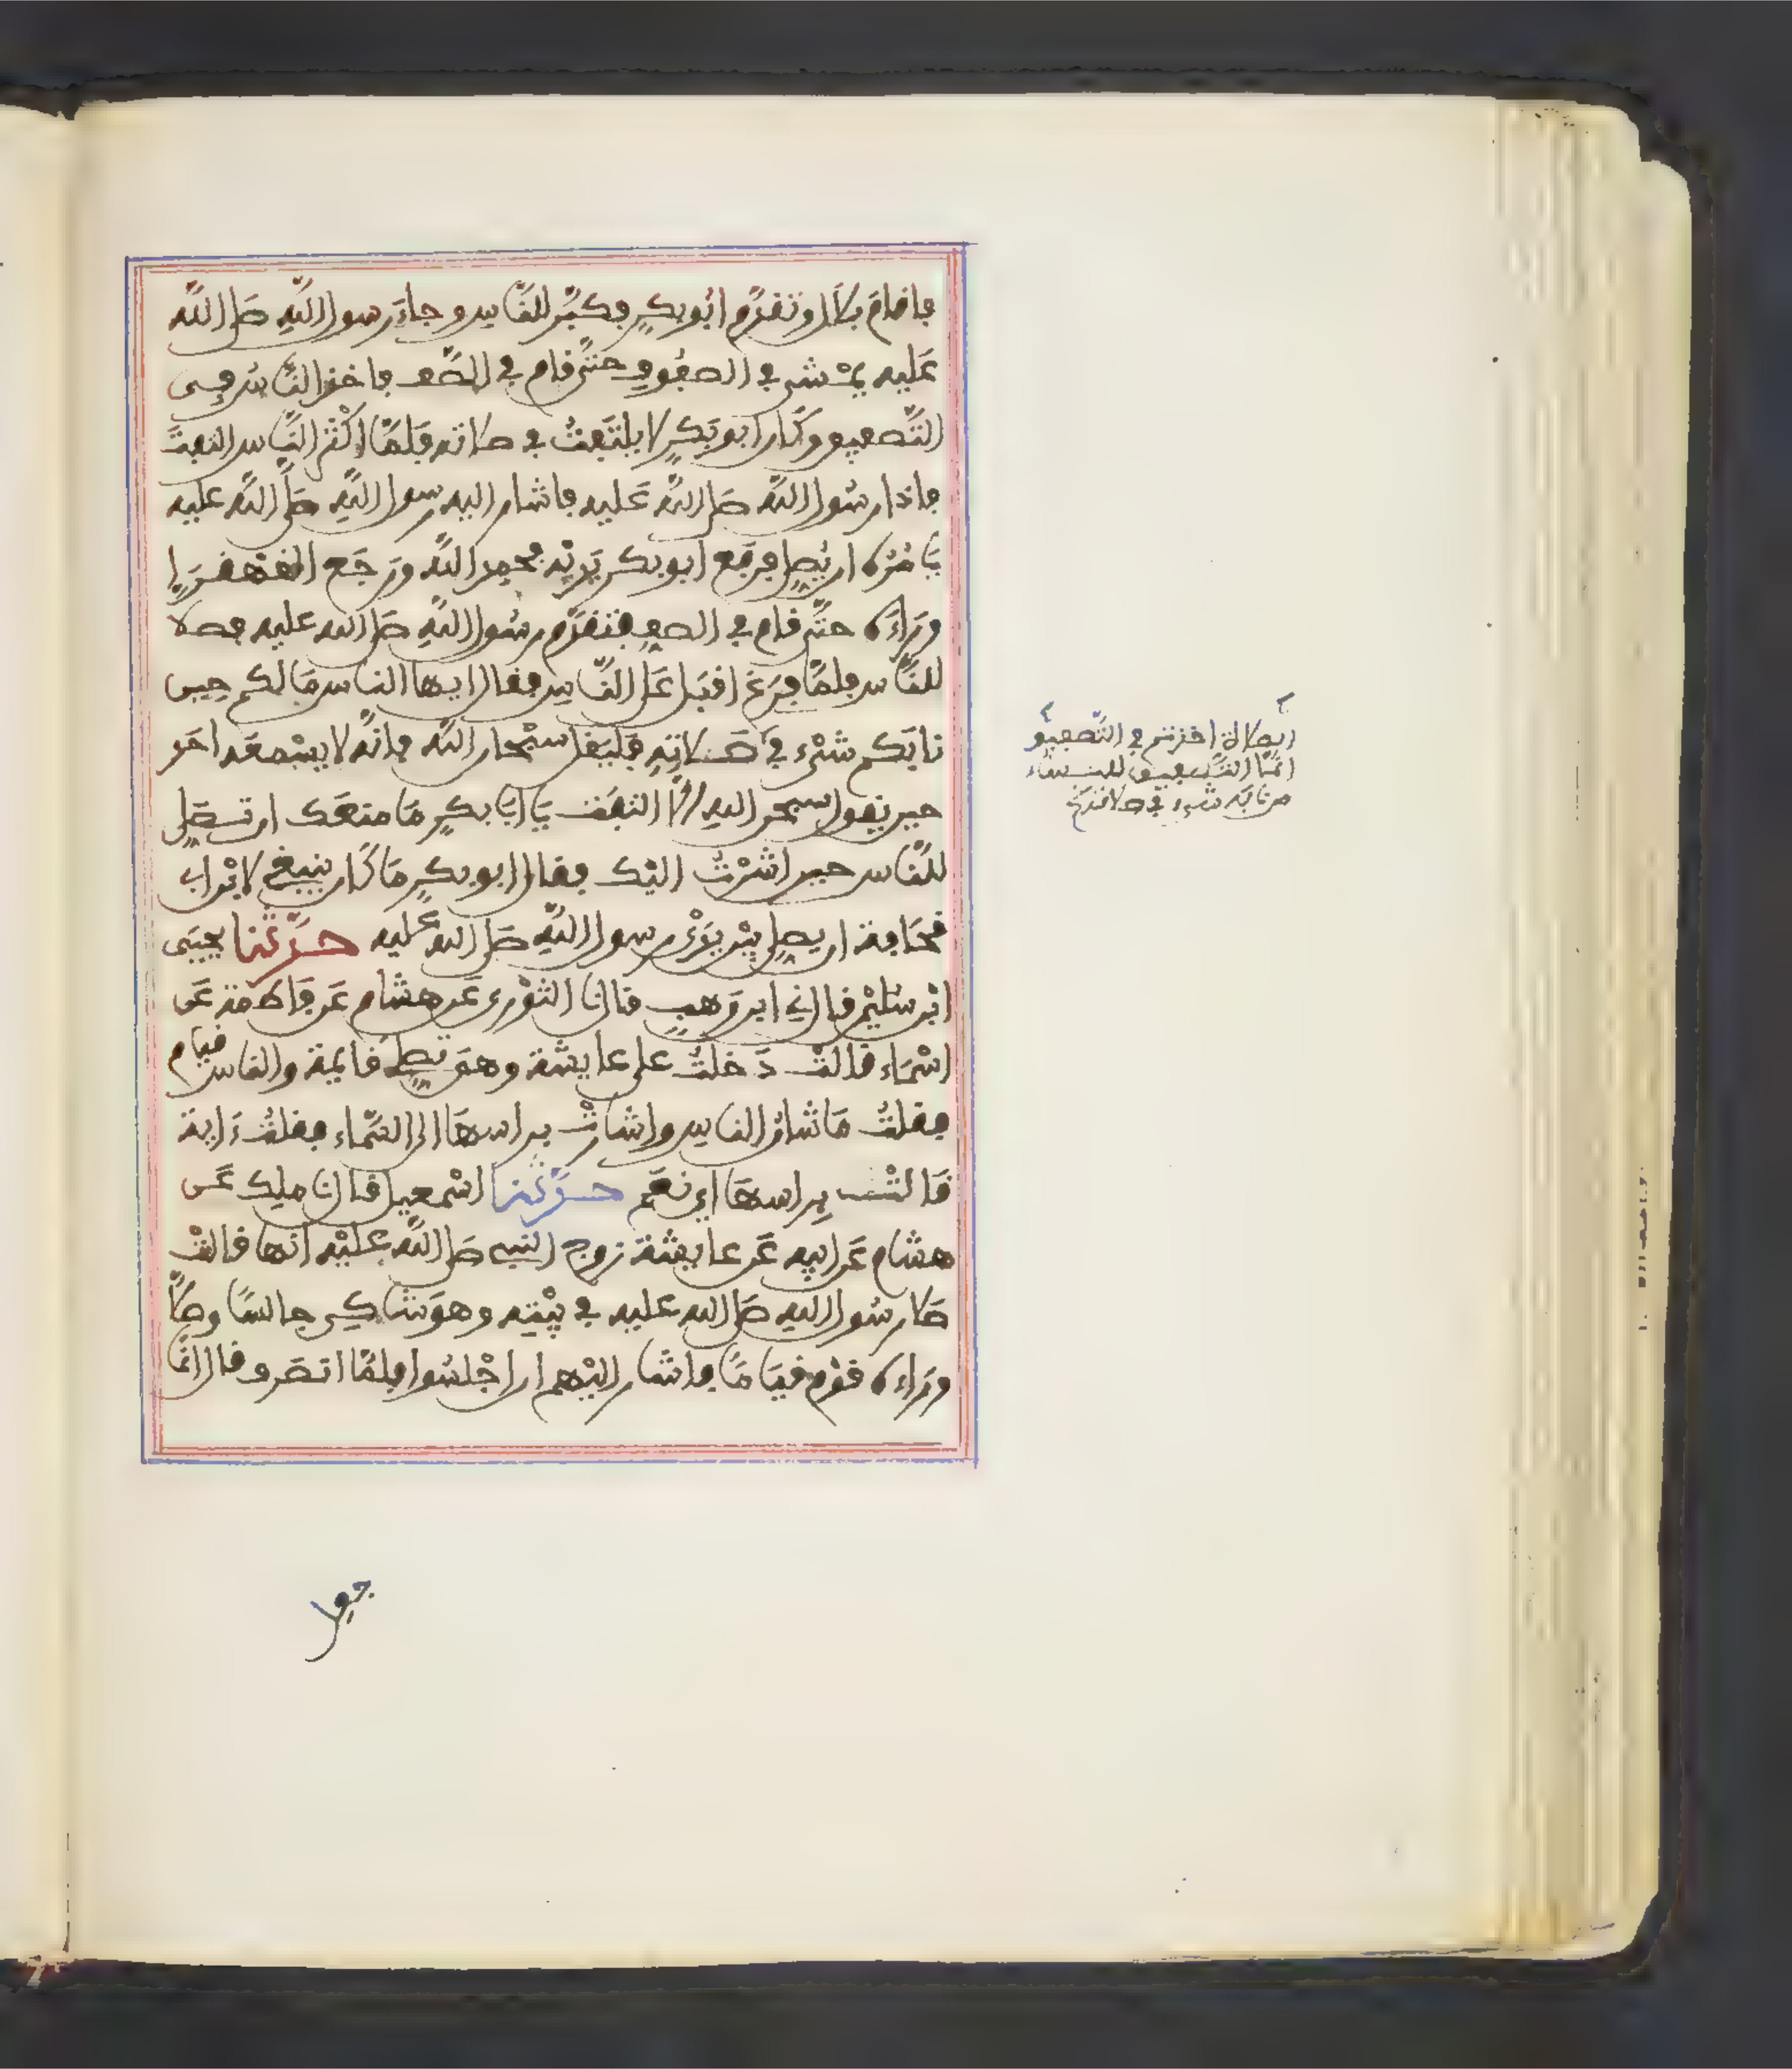 فاقام بلال وتقدم ابو بكر وكبر للناس وجاء رسول الله صلى الله
عليه يمشى في الصفوف حتى قام في الصف فاخذ الناس في
التصفيق وكان ابو بكر لا يلتفت في صلاته فلما اكثر الناس التفت
فاذا رسول الله صلى الله عليه فاشار اليه رسول الله صلى الله عليه
يامره ان يصلي فرفع ابو بكر يديه فحمد الله ورجع القهقرى
وراءه حتى قام في الصف فتقدم رسول الله صلى الله عليه فصلا
للناس فلما فرغ اقبل على الناس فقال ايها الناس ما لكم حين
نابكم شيء في صلاته فليقل سبحان الله فانه لا يسمعه احد
حين يقول سبحن الله الا التفت يا ابا بكر ما منعك ان تصلي
للناس حين اشرت اليك فقال ابو بكر ما كان ينبغي لابن ابي
قحافة ان يصلي بين يدي رسول الله صلى الله عليه حدثنا يحيى
ابن سليمن قال ني ابن وهب قال نا الثوري عن هشام عن فاطمة عن
اسماء قالت دخلت على عايشة وهى تصلي قايمة والناس قيام
فقلت ما شان الناس واشارت براسها الى السماء فقلت ءاية
قالت براسها اي نعم حدثنا اسمعيل قال نا ملك عن
هشام عن ابيه عن عايشة زوج النبي صلى الله عليه انها قالت
صلا رسول الله صلى الله عليه في بيته وهو شاكي جالسا وصلا
وراءه قوم قياما فاشار اليهم ان اجلسوا فلما انصرف قال انما
في الصلاة اخذتم في التصفيق
انما التصفيق للنساء
من نابه شيء في صلاته صح
جعل